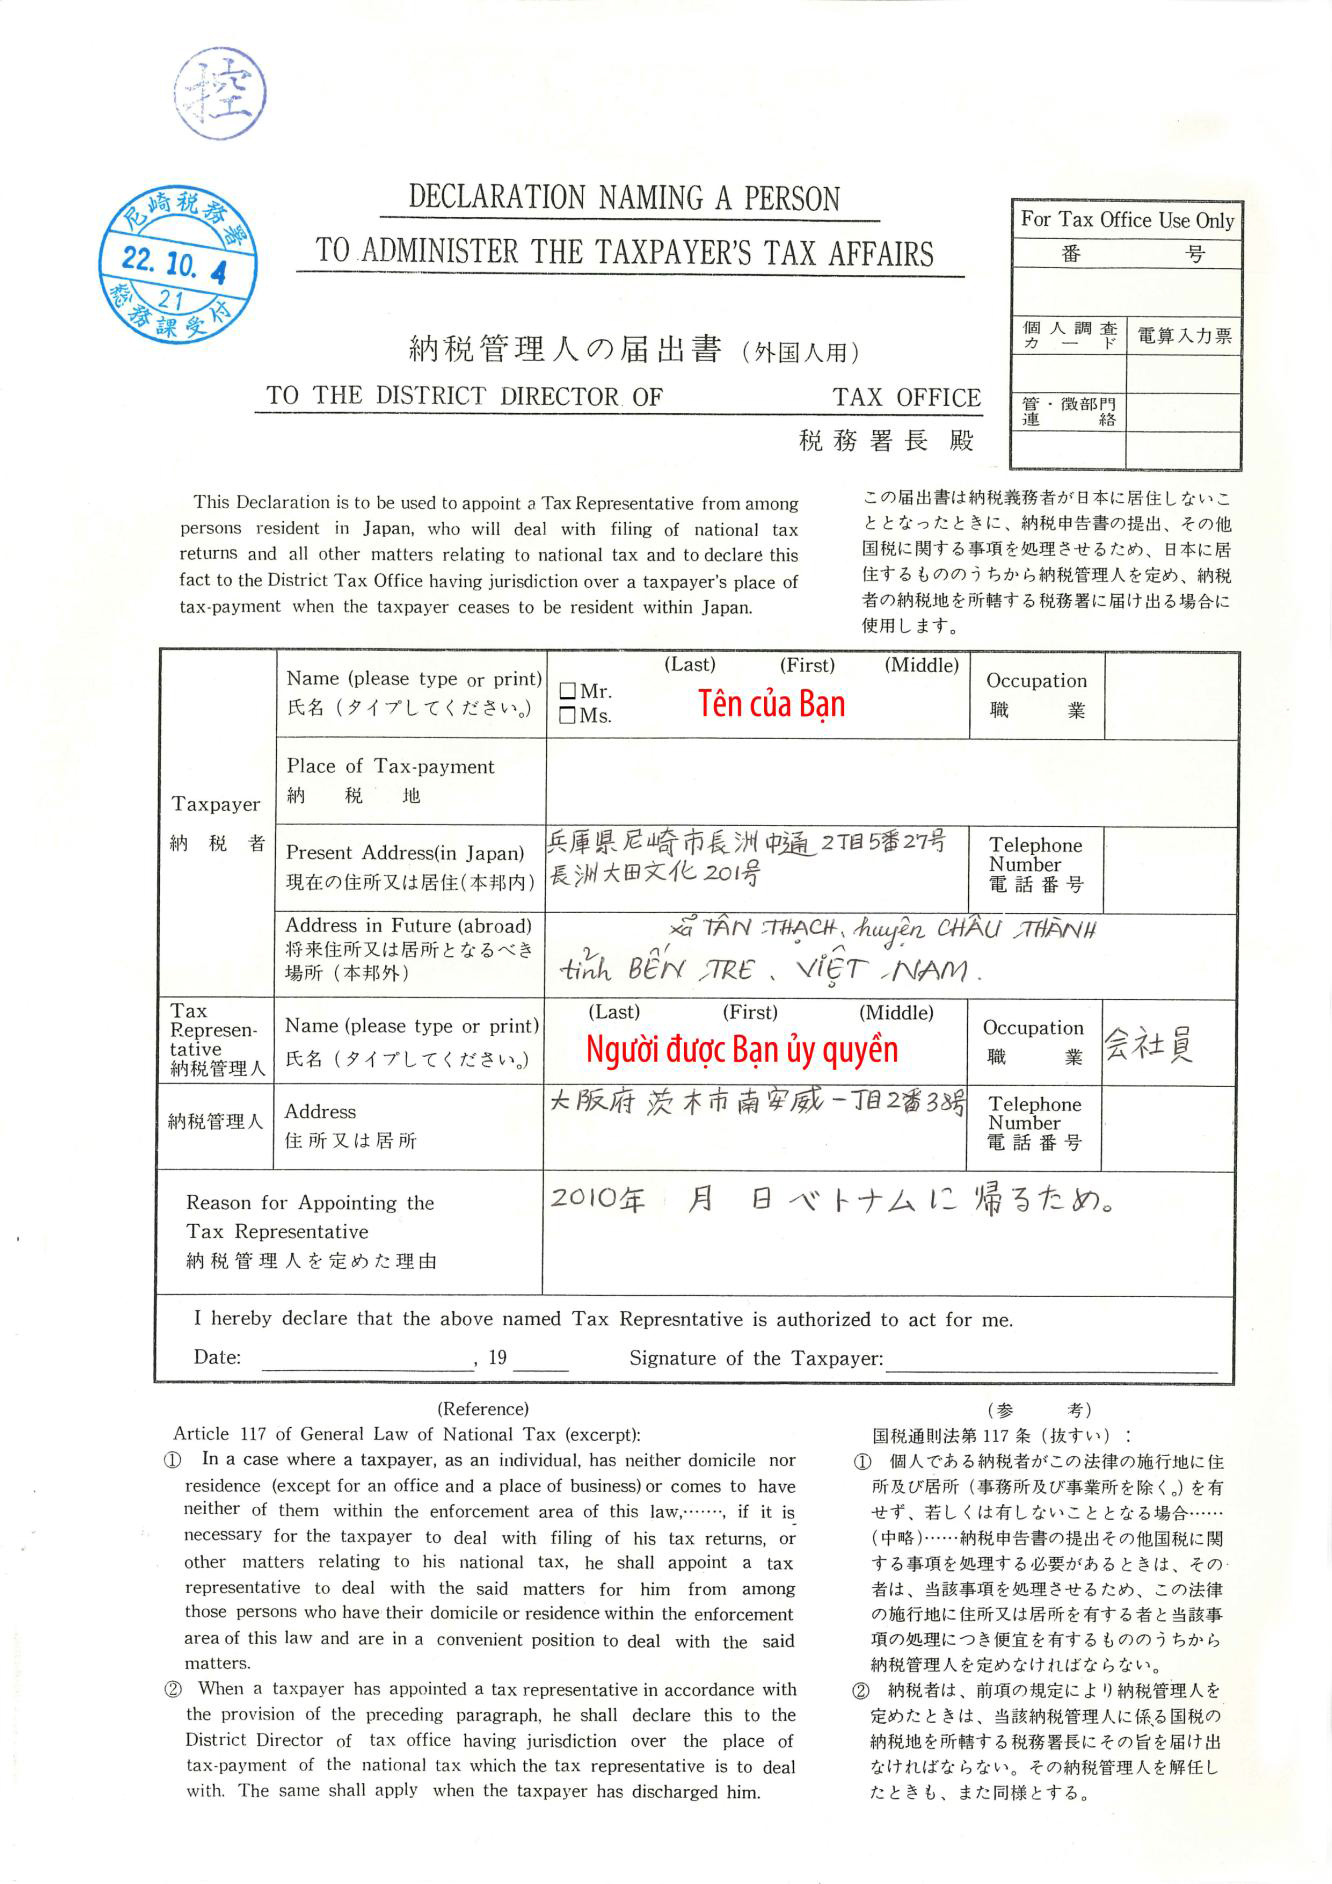 控
尼崎税務署
22.10.4
21
総務課受付
DECLARATION NAMING A PERSON
TO ADMINISTER THE TAXPAYER'S TAX AFFAIRS
納税管理人の届出書（外国人用）
TO THE DISTRICT DIRECTOR OF TAX OFFICE
税務署長 殿
For Tax Office Use Only
番 号
個人調査カード
電算入力票
管・徴部門連絡
This Declaration is to be used to appoint a Tax Representative from among
persons resident in Japan, who will deal with filing of national tax
returns and all other matters relating to national tax and to declare this
fact to the District Tax Office having jurisdiction over a taxpayer's place of
tax-payment when the taxpayer ceases to be resident within Japan.
この届出書は納税義務者が日本に居住しないこ
ととなったときに、納税申告書の提出、その他
国税に関する事項を処理させるため、日本に居
住するもののうちから納税管理人を定め、納税
者の納税地を所轄する税務署に届け出る場合に
使用します。
Taxpayer
納税者
Name (please type or print)
氏名（タイプしてください。）
(Last) (First) (Middle)
□Mr.
□Ms.
Tên của Bạn
Occupation
職 業
Place of Tax-payment
納税地
Present Address(in Japan)
現在の住所又は居住（本邦内）
兵庫県尼崎市長洲中通2丁目5番27号
長洲大田文化201号
Telephone
Number
電話番号
Address in Future (abroad)
将来住所又は居所となるべき
場所（本邦外）
xã TÂN THẠCH、huyện CHÂU THÀNH
tỉnh BẾN TRE、VIỆT NAM.
Tax
Represen-
tative
納税管理人
Name (please type or print)
氏名（タイプしてください。）
(Last) (First) (Middle)
Người được Bạn ủy quyền
Occupation
職 業
会社員
納税管理人
Address
住所又は居所
大阪府茨木市南安威一丁目2番38号
Telephone
Number
電話番号
Reason for Appointing the
Tax Representative
納税管理人を定めた理由
2010年 月 日ベトナムに帰るため。
I hereby declare that the above named Tax Represntative is authorized to act for me.
Date: , 19 Signature of the Taxpayer:
(Reference)
Article 117 of General Law of National Tax (excerpt):
① In a case where a taxpayer, as an individual, has neither domicile nor
residence (except for an office and a place of business) or comes to have
neither of them within the enforcement area of this law,……, if it is
necessary for the taxpayer to deal with filing of his tax returns, or
other matters relating to his national tax, he shall appoint a tax
representative to deal with the said matters for him from among
those persons who have their domicile or residence within the enforcement
area of this law and are in a convenient position to deal with the said
matters.
② When a taxpayer has appointed a tax representative in accordance with
the provision of the preceding paragraph, he shall declare this to the
District Director of tax office having jurisdiction over the place of
tax-payment of the national tax which the tax representative is to deal
with. The same shall apply when the taxpayer has discharged him.
（参 考）
国税通則法第117条（抜すい）：
① 個人である納税者がこの法律の施行地に住
所及び居所（事務所及び事業所を除く。）を有
せず、若しくは有しないこととなる場合……
（中略）……納税申告書の提出その他国税に関
する事項を処理する必要があるときは、その
者は、当該事項を処理させるため、この法律
の施行地に住所又は居所を有する者と当該事
項の処理につき便宜を有するもののうちから
納税管理人を定めなければならない。
② 納税者は、前項の規定により納税管理人を
定めたときは、当該納税管理人に係る国税の
納税地を所轄する税務署長にその旨を届け出
なければならない。その納税管理人を解任し
たときも、また同様とする。